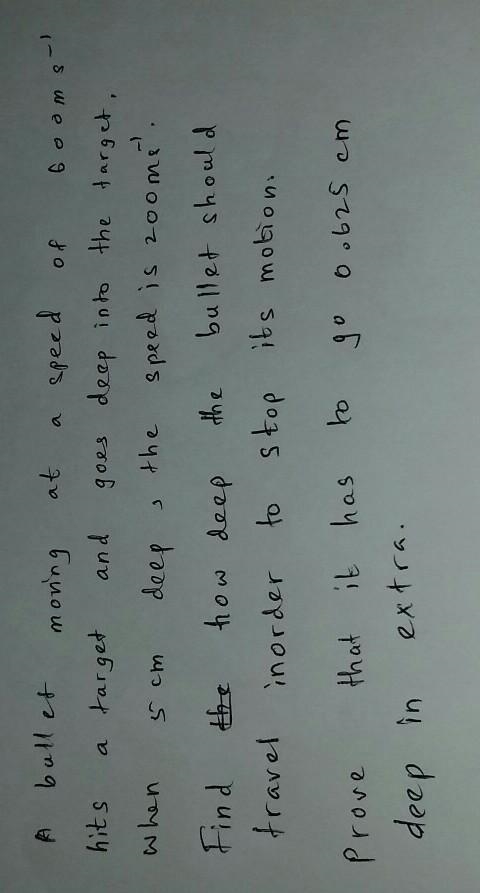 A bullet moving at a speed of 600ms⁻¹
hits a target and goes deep into the target.
When 5cm deep, the speed is 200ms⁻¹.
Find how deep the bullet should
travel inorder to stop its motion.
Prove that it has to go 0.625 cm
deep in extra.